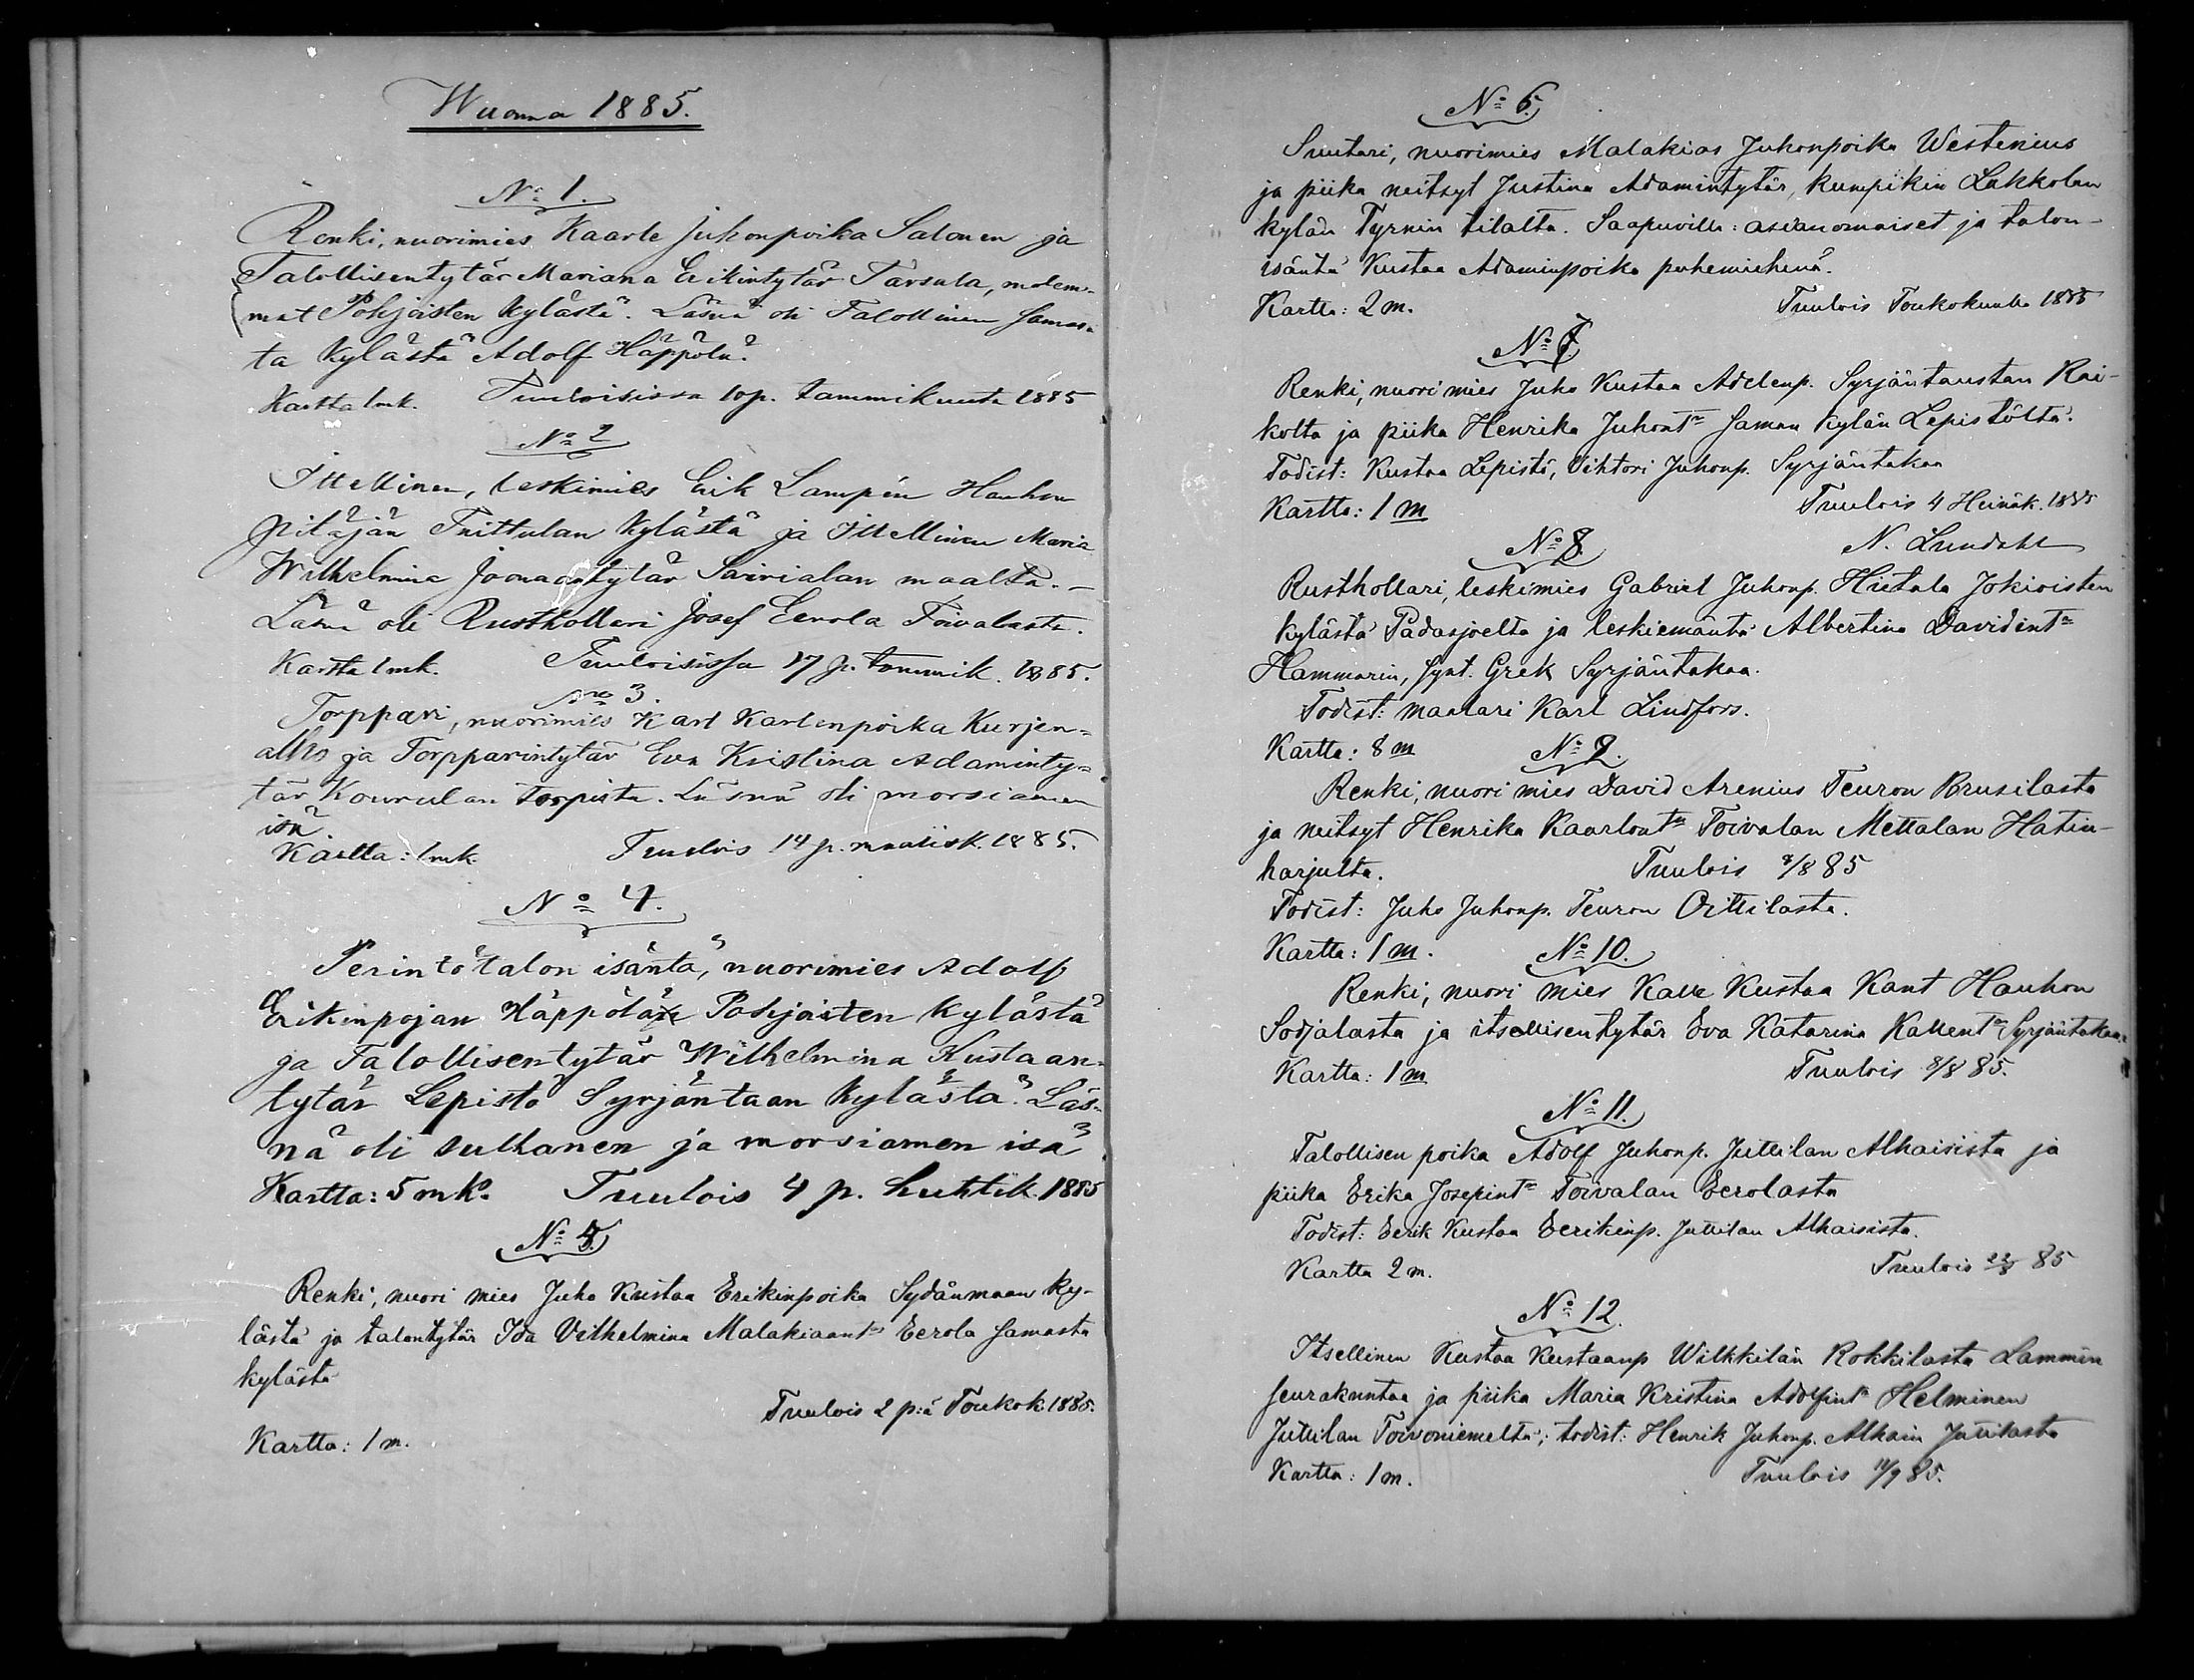 Wuonna 1885.
No 1.
Renki, nuorimies Kaarle Juhonpoika Salonen ja
Talollisentytär Mariana Erikintytär Tarsala, molem-
mat Pohjoisten kylästä. Läsnä oli Talollinen samas-
ta kylästä Adolf Häppölä.
Kartta 1mk. Tuuloisissa 10p. tammikuuta 1885
No 2
Ittellinen, leskimies Erik Lampén Hauhon
pitäjän Tuittulan kylästä ja Ittellinen Maria
Wilhelmina Joonaantytär Sairialan maalta. –
Läsnä oli Rusthollari Josef Eerola Toivalasta.
Kartta 1mk. Tuuloisissa 17 p. tammik. 1885.
No 3.
Torppari, nuorimies Karl Karlenpoika Kurjen-
alho ja Torpparintytär Eva Kristina Adaminty-
tär Kourulan torpista. Läsnä oli morsiamen
isä
Kartta: 1mk. Tuulois 14 p. maalisk. 1885.
No 4.
Perintötalon isäntä, nuorimies Adolf
Erikinpojan Häppölä Pohjoisten kylästä
ja Talollisentytär Wilhelmina Kustaan-
tytär Lepistö Syrjäntaan kylästä. Läs-
nä oli sulhanen ja morsiamen isä
Kartta: 5 mk. Tuulois 4 p. huhtik. 1885
No 5.
Renki, nuori mies Juho Kustaa Erikinpoika Sydänmaan ky-
lästä ja talontytär Ida Vilhelmina Malakiaant:r Eerola samasta
kylästä
Tuulois 2 p:ä Toukok. 1885.
Kartta: 1 m.
No 6.
Suutari, nuorimies Malakias Juhonpoika Westenius
ja piika neitsyt Justina Adamintytär, kumpikin Lakkolan
kylän Tyrnin tilalta. Saapuvilla: asianomaiset ja talon-
isäntä Kustaa Adaminpoika puhemiehenä.
Kartta: 2 m. Tuulois Toukokuulla 1885
No 7.
Renki, nuori mies Juho Kustaa Adelenp. Syrjäntaustan Rai-
kolta ja piika Henrika Juhont:r saman kylän Lepistöltä.
Todist: Kustaa Lepistö, Vihtori Juhonp. Syrjäntakaa
Kartta: 1 m Tuulois 4 Heinäk. 1885
N. Lundahl
No 8.
Rusthollari, leskimies Gabriel Juhonp. Hietala Jokioisten
kylästä Padasjoelta ja leskiemäntä Albertina Davidint:r
Hammarin, synt. Grek Syrjäntakaa.
Todist: maalari Karl Lindfors.
Kartta: 8 m
No 9.
Renki, nuori mies David Arenius Teuron Prusilasta
ja neitsyt Henrika Kaarlont:r Toivalan Mettalan Hatin-
harjulta. Tuulois 8/8 85
Todist: Juho Juhonp. Teuron Oittilasta.
Kartta: 1 m.
No 10.
Renki, nuori mies Kalle Kustaa Kant Hauhon
Sodjalasta ja itsellisentytär Eva Katarina Kallent:r Syrjäntakaa.
Kartta: 1 m Tuulois 8/8 85.
No 11.
Talollisen poika Adolf Juhonp. Juttilan Alhaisista ja
piika Erika Josepint:r Toivalan Eerolasta
Todist: Eerik Kustaa Eerikinp. Juttilan Alhaisista.
Kartta 2 m. Tuulois 22/8 85
No 12.
Itsellinen Kustaa Kustaanp Wilkkilän Rokkilasta Lammin
seurakuntaa ja piika Maria Kristina Adolfint:r Helminen
Juttilan Toivoniemeltä; todist: Henrik Juhonp. Alhain Juttilasta
Kartta: 1 m. Tuulois /9 85.